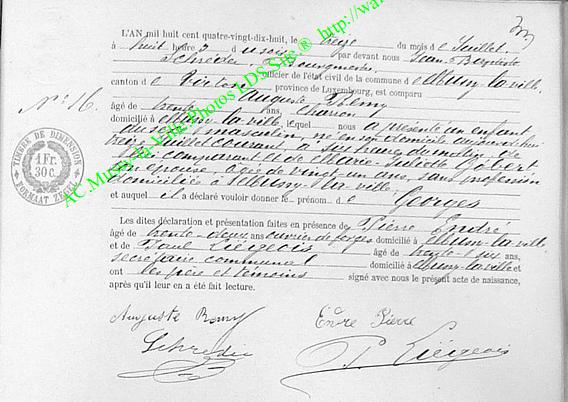 L'AN mil huit cent quatre-vingt-dix-huit, le treize du mois de Juillet,
à huit heures du soir par devant nous Jean-Baptiste
Schréder, Bourgmestre, officier de l'état civil de la commune de Mussy-la-ville,
canton de Virton province de Luxembourg, est comparu
Auguste Rémy
âgé de trente ans, charron
domicilié à Mussy-la-ville, lequel nous a présenté un enfant
du sexe masculin, né en son domicile aujourd'hui
treize Juillet courant à sept heures du matin de
lui comparant et de Marie Gobert
son épouse, âgée de vingt-un ans, sans profession
domiciliée à Mussy-la-ville,
et auquel il a déclaré vouloir donner le prénom de Georges
Les dites déclaration et présentation faites en présence de Pierre André
âgé de trente-deux ans ouvrier de forges domicilié à Mussy-la-ville
et de Paul Liégeois âgé de trente-six ans,
secrétaire communal domicilié à Mussy-la-ville et
ont les père et témoins signé avec nous le présent acte de naissance,
après qu'il leur en a été fait lecture.
N° 16.
TIMBRE DE DIMENSION
1 Fr.
30 c.
FORMAAT ZEGEL
Auguste Remy
Pierre
Schréder
P. Liégeois
AC Mussy-la-Ville Photos EDS Site ® http://wa